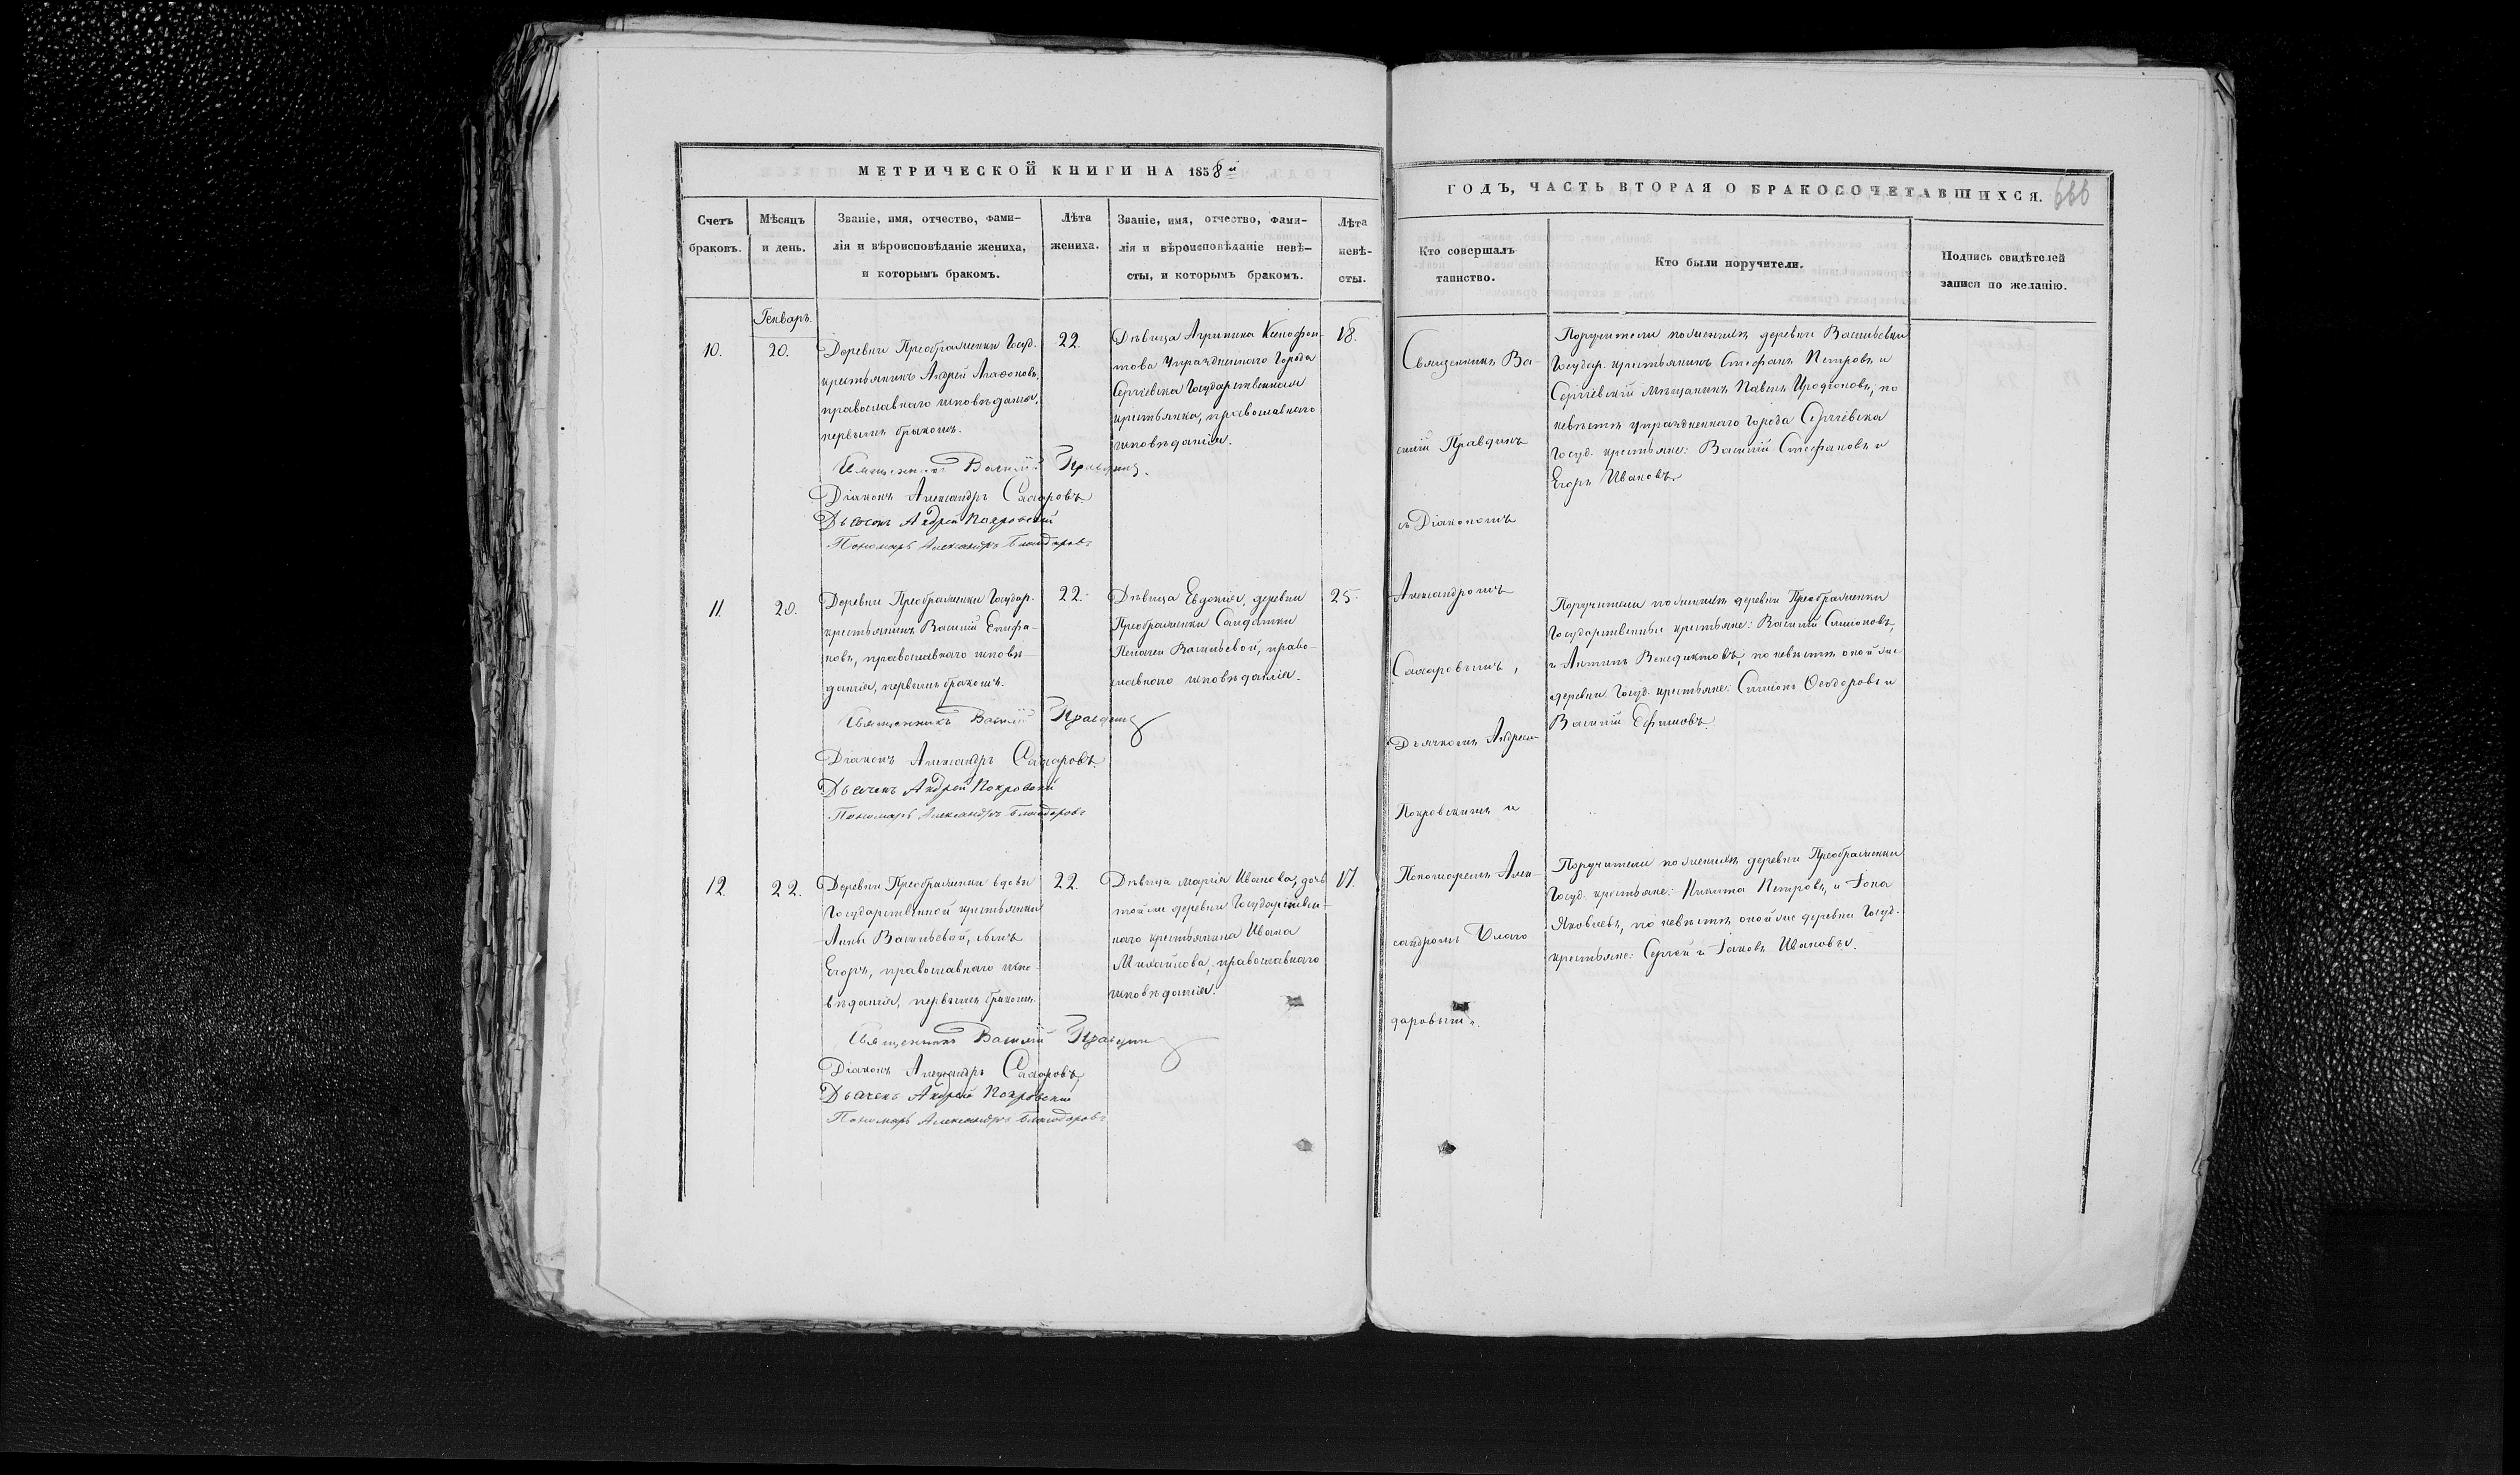 МЕТРИЧЕСКОЙ КНИГИ НА 1858й
Счетъ браковъ.
Мѣсяцъ и день.
Званіе, имя, отчество, фами-
лія и вѣроисповѣданіе жениха,
и которымъ бракомъ.
Лѣта жениха.
Званіе, имя, отчество, фами-
лія и вѣроисповѣданіе невѣ-
сты, и которымъ бракомъ.
Лѣта невѣ-
сты.
Генваръ.
10.
20.
Деревни Преображенки Госуд.
крестьянинъ Андрей Агафоновъ,
православнаго исповѣданія,
первымъ бракомъ.
22.
Дѣвица Агрипина Ксенофон-
това Упраздненнаго Города
Сергіевска Государственная
крестьянка, православнаго
исповѣданія.
18.
Священникъ Василій Правдинъ.
Діаконъ Александръ Сахаровъ
Дьячокъ Андрей Покровскій
Пономарь Александръ Благодаровъ
11.
20.
Деревни Преображенки Государ.
крестьянинъ Василій Епифа-
новъ, православнаго исповѣ-
данія, первымъ бракомъ.
22.
Дѣвица Евдокія, деревни
Преображенки Солдатки
Пелагеи Васильевой, право-
славнаго исповѣданія.
25.
Священникъ Василій Правдинъ
Діаконъ Александръ Сахаровъ.
Дьячекъ Андрей Покровскій
Пономарь Александръ Благодаровъ
12.
22.
Деревни Преображенки вдовы
Государственной крестьянки
Анны Васильевой, сынъ
Егоръ, православнаго испо-
вѣданія, первымъ бракомъ.
22.
Дѣвица Марія Иванова, дочь
той же деревни Государствен-
наго крестьянина Ивана
Михайлова, православнаго
исповѣданія.
17.
Священникъ Василій Правдинъ
Діаконъ Александръ Сахаровъ,
Дьячекъ Андрей Покровскій
Пономарь Александръ Благодаровъ
ГОДЪ, ЧАСТЬ ВТОРАЯ О БРАКОСОЧЕТАВШИХСЯ.
666
Кто совершалъ
таинство.
Кто были поручители.
Подпись свидѣтелей
записи по желанію.
Священникъ Ва-
силій Правдинъ
съ Діакономъ
Александромъ
Сахаровымъ,
Дьячкомъ Андреем
Покровскимъ и
Пономаремъ Алек-
сандромъ Благо
даровымъ.
Поручители по женихѣ деревни Васильевки
Государ. крестьянинъ Стефанъ Петровъ и
Сергіевскій мѣщанинъ Павелъ Иродіоновъ; по
невѣстѣ упраздненнаго Города Сергіевска
Госуд. крестьяне: Василій Стефановъ и
Егоръ Ивановъ.
Поручители по женихѣ деревни Преображенки
Государственные крестьяне: Василій Симоновъ,
и Антипъ Венедиктовъ, по невѣстѣ оной же
деревни Госуд. крестьяне: Симіонъ Ѳеодоровъ и
Василій Ефимовъ.
Поручители по женихѣ деревни Преображенки
Госуд. крестьяне: Никита Петровъ, и Іона
Яковлевъ, по невѣстѣ оной же деревни Госуд.
крестьяне: Сергей и Іаковъ Ивановы.